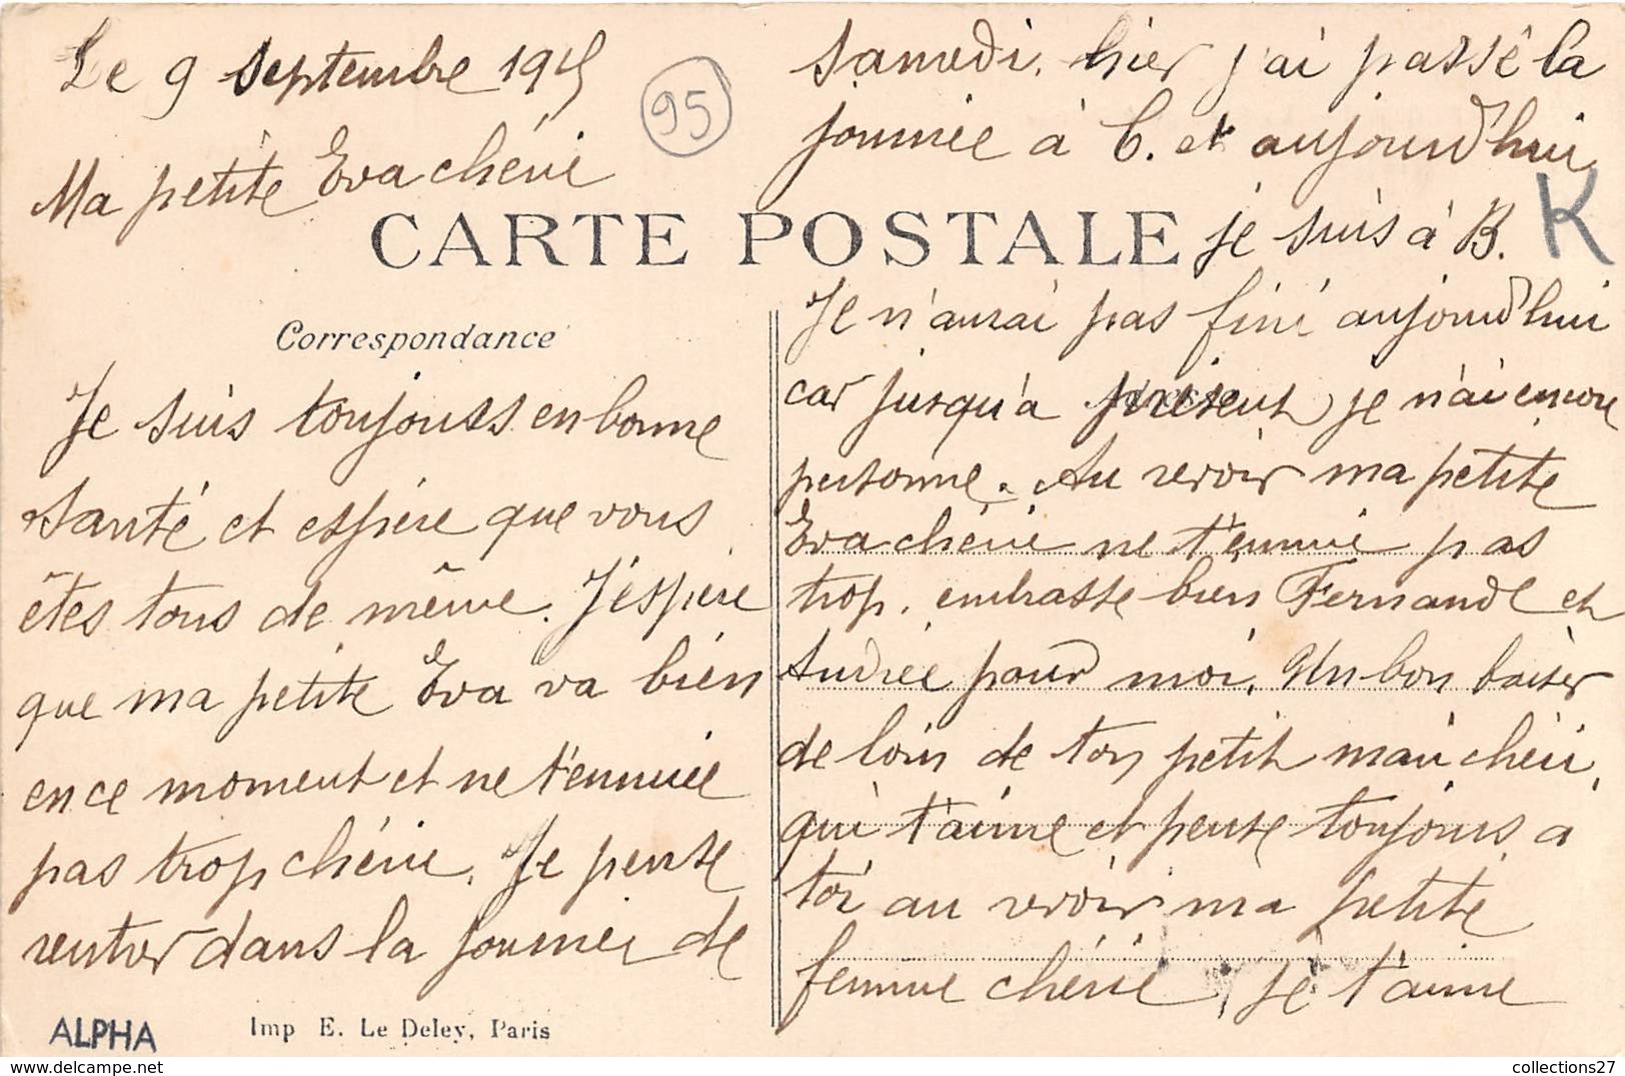 Le 9 Septembre 1915
95
Ma petite Eva chérie
CARTE POSTALE
Correspondance
Je suis toujours en bonne
santé et espère que vous
êtes tous de même. J'espère
que ma petite Eva va bien
en ce moment et ne t'ennuie
pas trop chérie. Je pense
rentrer dans la journée de
ALPHA
Imp E. Le Deley, Paris
samedi. hier j'ai passé la
journée à C. et aujourd'hui
je suis à B.
K
Je n'aurai pas fini aujourd'hui
car jusqu'a présent je n'ai encore
personne. Au revoir ma petite
Eva chérie ne t'ennuie pas
trop. embrasse bien Fernande et
Andrée pour moi. Un bon baiser
de loin de ton petit mari chéri,
qui t'aime et pense toujours a
toi au revoir ma petite
femme chérie, je t'aime
collections27